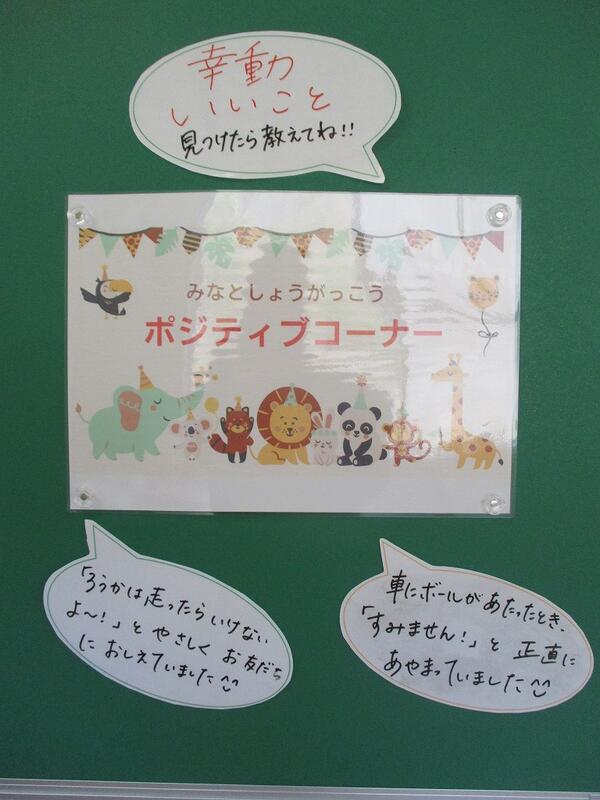 幸動
いいこと
見つけたら教えてね!!
みなとしょうがっこう
ポジティブコーナー
「ろうかは走ったらいけない
よ〜!」と やさしく お友だち
に おしえていました
車にボールがあたったとき、
「すみません!」と 正直に
あやまっていました